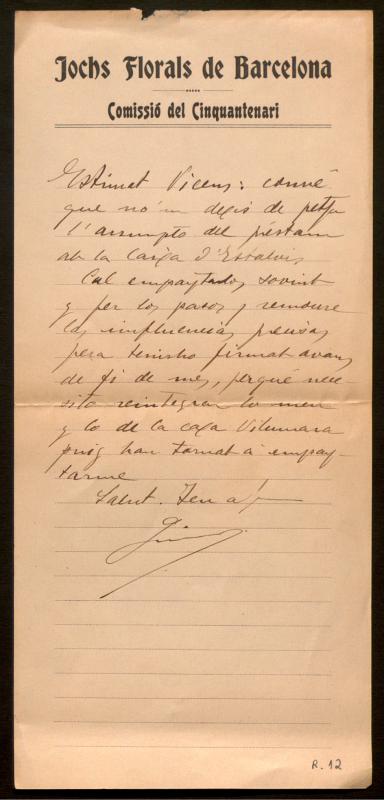 Jochs Florals de Barcelona
Comissió del Cinquantenari
Estimat Vicens: convé
que no'm dexis de petja
l'assumpto del préstam
ab la Caixa d'Estalvis
Cal empaytarlos sovint
y per los passos y remoure
las influencias
pera tenirho firmat avans
de fi de mes, perqué nece-
sito reintegrar lo meu
y lo de la casa Vilumara
puig han tornat á empay-
tarme
Salut. Teu
R. 12